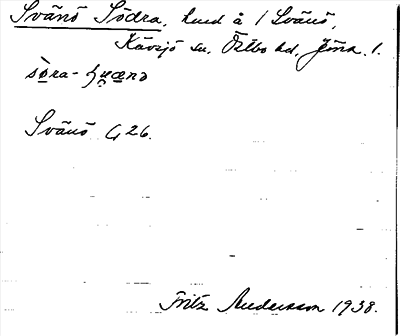 Svänö Södra, hmd å / Svänö,
Kävsjö sn, Östbo hd, Jöna. l.
sò̱ra-
Svänö G 26.
Fritz Andersson 1938.